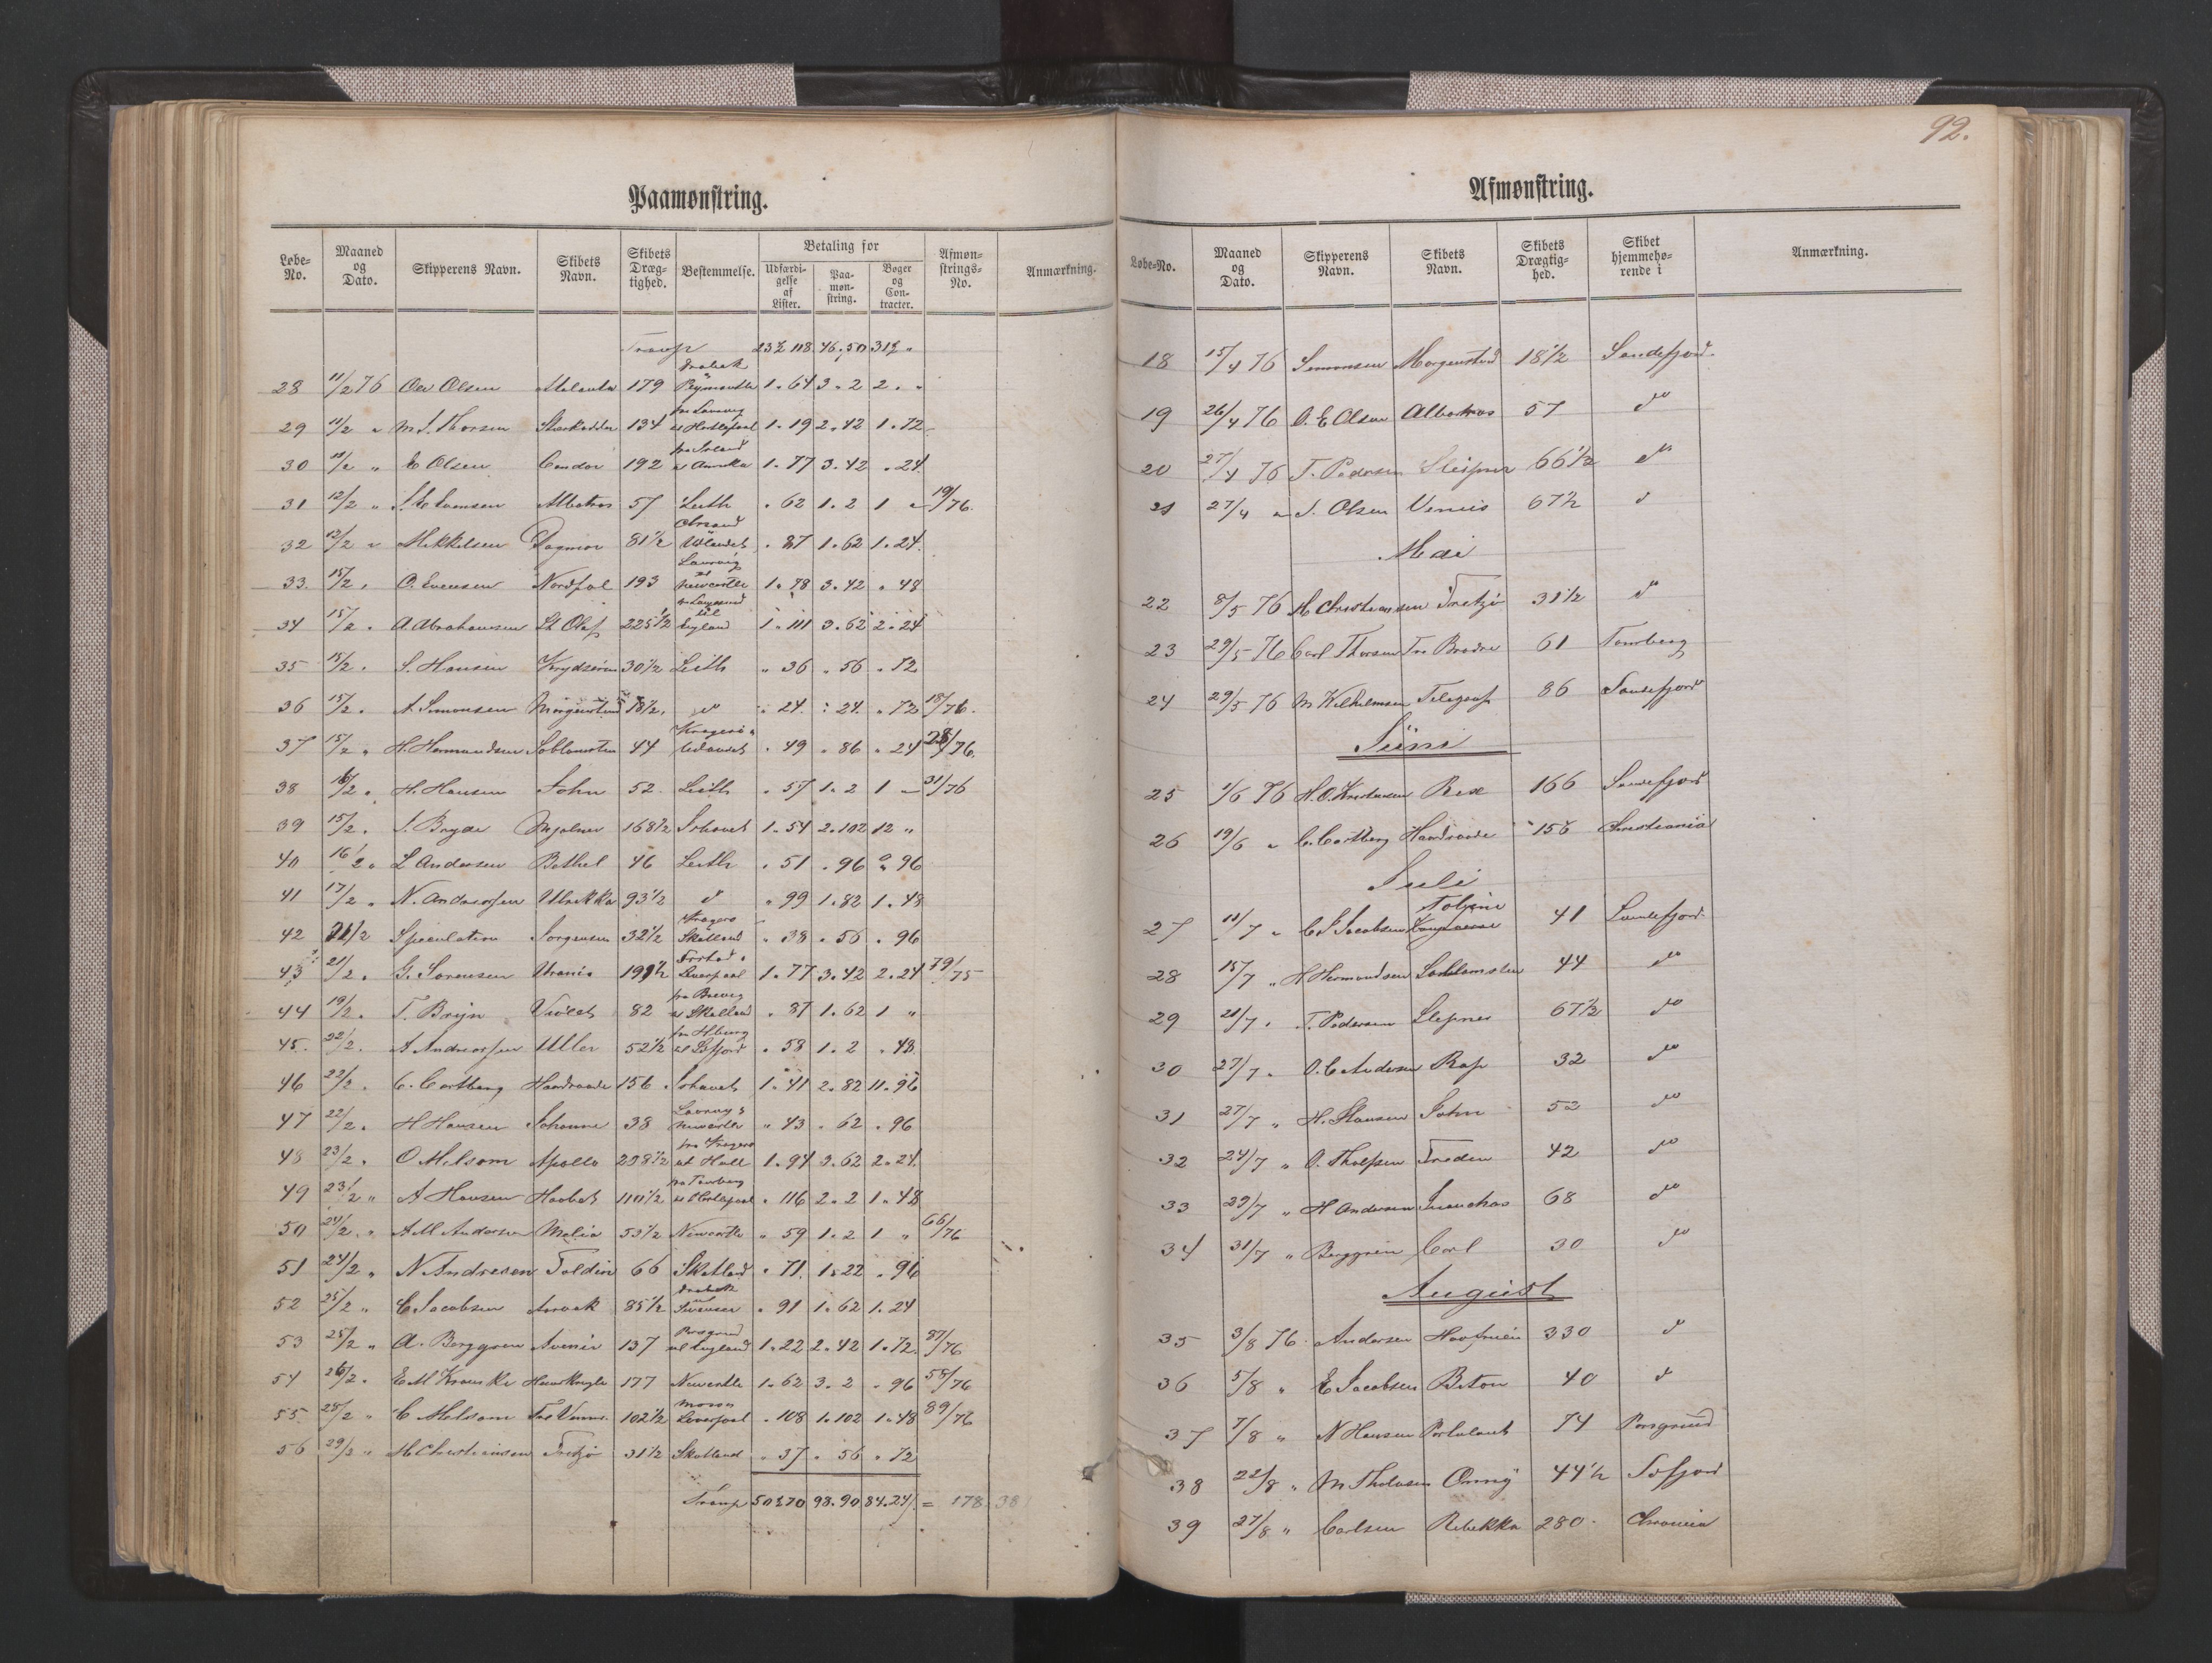 92.
Paamønstring.
Løbe-No. | Maaned og Dato. | Skipperens Navn. | Skibets Navn. | Skibets Drægtighed. | Bestemmelse. | Betaling for | Udfærdigelse af Lister. | Paamønstring. | Bøger og Contracter. | Afmønstrings-No. | Anmærkning.
Transp
28 11/2 76 Ole Olsen 179 Drøbak Plymouth 1. 64 3. 2 2. „
29 11/2 „ M. S. Thorsen Stærkodder 134 fra Laurvig til Hartlepool 1. 19 2. 42 1. 72
30 11/2 „ E Olsen Condor 192 1. 77 3. 42 „ 24
31 12/2 „ Albatros 57 Leith „ 62 1. 2 1 „ 19/76.
32 12/2 „ Mikkelsen Dagmar 81 1/2 Udlandet „ 87 1. 62 1. 24
33. 15/2 „ O. Evensen Nordpol 193 Laurvig Newcastle 1. 78 3. 42 „ 48
34 15/2 „ A. Abrahamsen St Olaf 225 1/2 til England 1. 111 3. 62 2. 24
35 15/2 „ S. Hansen Krydseren 30 1/2 Leith „ 36 „ 56 „ 72
36 15/2 „ A. Simonsen Morgenstund 18 1/2 do „ 24 „ 24 „ 72 18/76.
37 15/2 „ H. Hermandsen Søblomsten 44 Kragerø Udlandet „ 49 „ 86 „ 24 28/76.
38 16/2 „ H. Hansen John 52 Leith „ 57 1. 2 1 „ 31/76
39 15/2 „ S. Bryde Mjølner 168 1/2 Ishavet 1. 54 2. 102 12 „
40 16/2 „ L Andersen Bethel 46 Leith „ 51 „ 96 „ 96
41 17/2 „ N. Andersen Ulrikka 93 1/2 do „ 99 1. 82 1. 48
42 21/2 Speculation Jørgensen 32 1/2 Kragerø Skotland „ 38 „ 56 „ 96
43 21/2 „ G. Sørensen Urania 191 1/2 Liverpool 1. 77 3. 42 2. 24 79/75
44 19/2 „ T. Bryn Violet 82 fra Brevig til Skotland „ 87 1. 62 1 „
45. 22/2. A Andersen Uller 52 1/2 „ 58 1. 2 „ 48
46 22/2 „ C. Cortberg Haardraade 156 Ishavet 1. 41 2. 82 11. 96
47 22/2 „ H Hansen Johanne 38 Laurvig Newcastle „ 43 „ 62 „ 96
48 23/2 „ O Melsom Apollo 238 1/2 fra Kragerø til Hull 1. 94 3. 62 2. 24
49 23/2 „ A Hansen Haabet 110 1/2 fra Tønsberg til Hartlepool „ 116 2. 2 1. 48
50 24/2 „ A M Andersen Melia 53 1/2 Newcastle „ 59 1. 2 1 „ 66/76
51 24/2 „ N Andresen Foldin 66 Skotland „ 71 1. 22 „ 96
52 25/2 „ C Jacobsen Aarvak 85 1/2 Drøbak til Swansea „ 91 1. 62 1. 24
53 25/2 „ A. Berggren Avenir 137 Porsgrund til England 1. 22 2. 42 1. 72 87/76
54 26/2 „ E M 177 Newcastle 1. 62 3. 2 „ 96 58/76
55 28/2 „ C Melsom Tre Venner 102 1/2 Moss Liverpool „ 108 1. 102 1. 48 89/76
56 29/2 „ M Christiansen Fritzø 31 1/2 Skotland „ 37 „ 56 „ 72
Transp 98. 90 84. 24 = 178 38
Afmønstring.
Løbe-No. | Maaned og Dato. | Skipperens Navn. | Skibets Navn. | Skibets Drægtighed. | Skibet hjemmehørende i | Anmærkning.
18 15/4 76 Simonsen Morgenstund 18 1/2 Sandefjord
19 26/4 76 O. E Olsen Albatros 57 do
20 27/4 76 T. Pedersen Sleipner 66 1/2 do
21 27/4 „ J. Olsen Venus 67 1/2 do
Mai
22 8/5 76 M Christiansen Fritzø 31 1/2 do
23 29/5 76 Carl Thorsen Tre Brødre 61 Tønsberg
24 29/5 76 M Vilhelmsen Telegraf 86 Sandefjord
Juni
25 1/6 76 H. O. Kristensen Rex 166 Sandefjord
26 19/6 „ C. Cortberg Haardraade 156 Christiania
Juli
27 11/7 „ C S Jacobsen 41 Sandefjord
28 15/7 „ H Hermandsen Søblomsten 44 do
29 21/7 „ T. Pedersen Slepner 67 1/2 do
30 27/7 „ O. C Andersen Rap 32 do
31 27/7 „ H. Hansen John 52 do
32 24/7 „ O. Tholfsen Freden 42 do
33 29/7 „ H Andersen 68 do
34 31/7 „ Berggren Carl 30 do
August
35 3/8 76 Andersen Havfruen 330 do
36 5/8 „ E Jacobsen Beton 40 do
37 7/8 „ N Hansen Portulant 74 Porsgrund
38 22/8 „ M Tholvsen Onny 44 1/2
39 27/8 „ Carlsen Rebekka 280